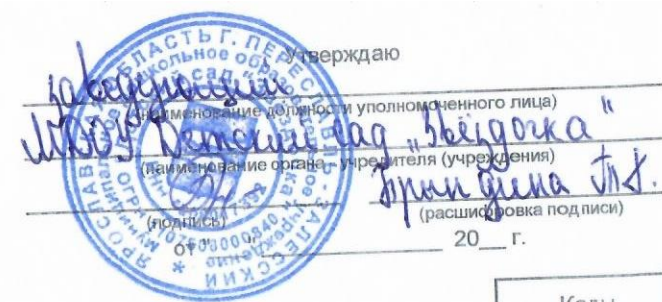 Утверждаю
заведующий
(наименование должности уполномоченного лица)
МДОУ Детский сад „Звёздочка"
(наименование органа - учредителя (учреждения)
Брындина Т.А.
(подпись) (расшифровка подписи)
от " " 20__ г.
ЯРОСЛАВСКАЯ ОБЛАСТЬ Г. ПЕРЕСЛАВЛЬ-ЗАЛЕССКИЙ
Коды